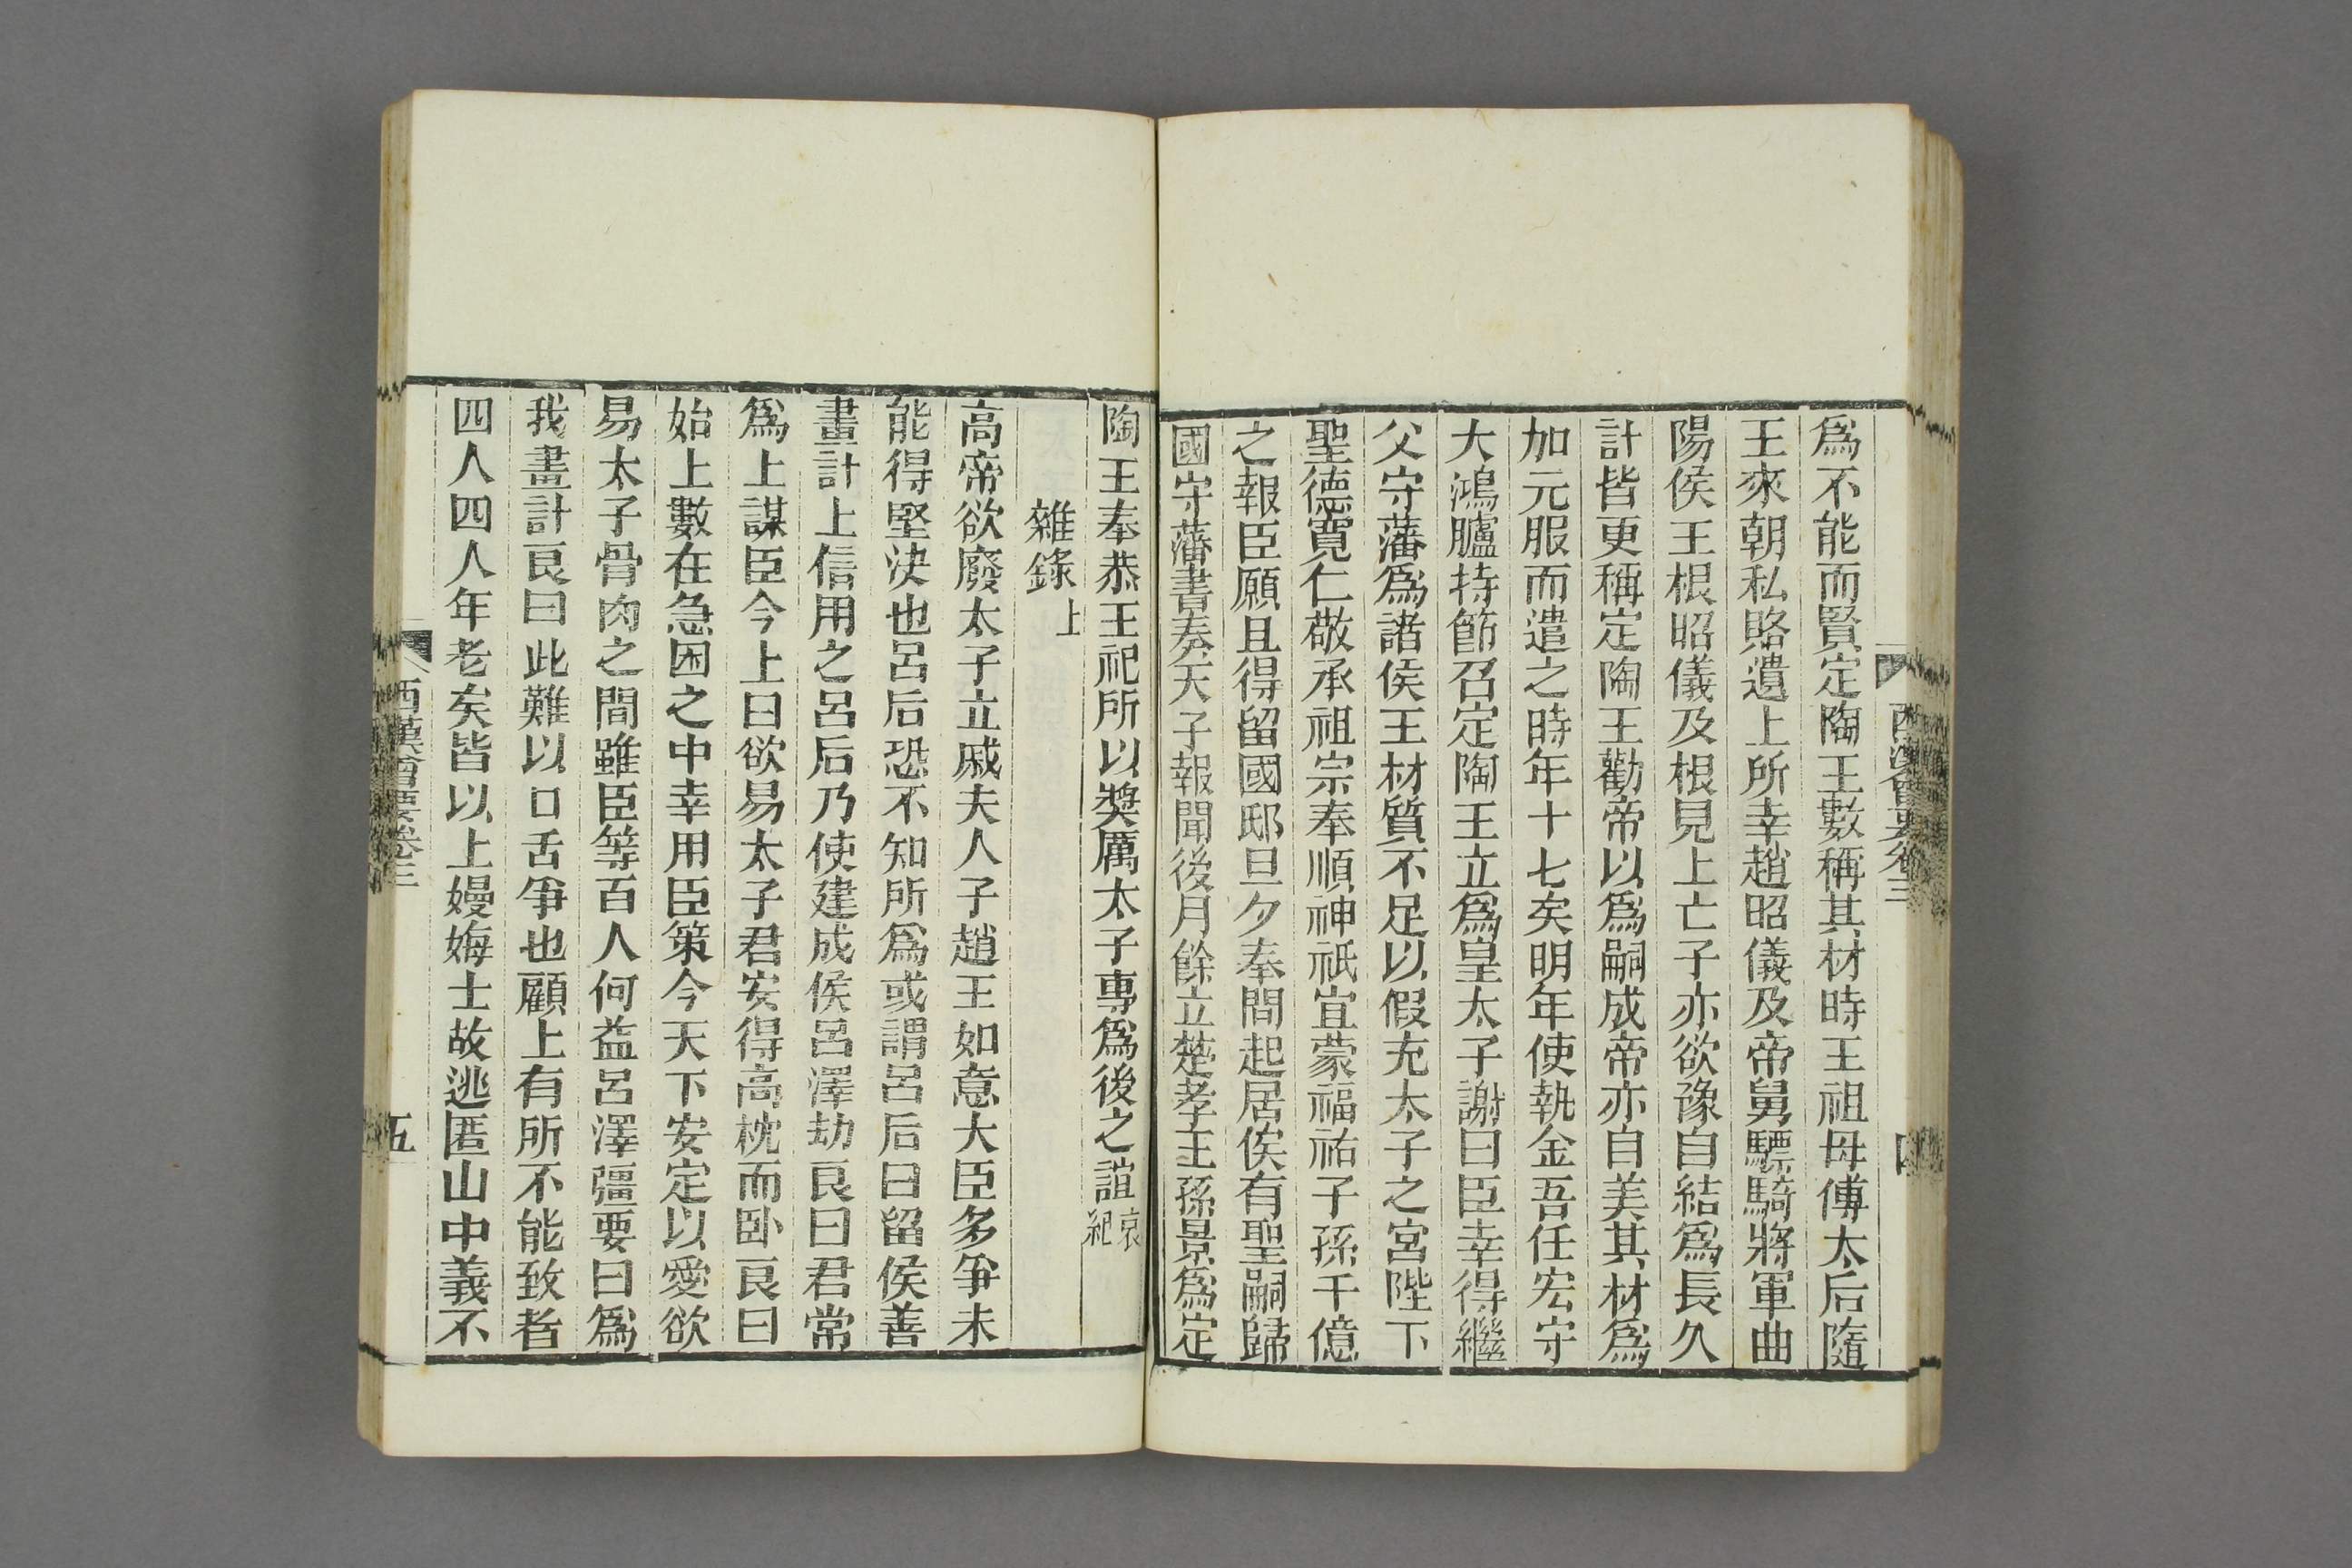 西漢會要卷三
四
爲不能而賢定陶王數稱其材時王祖母傅太后隨
王來朝私賂遺上所幸趙昭儀及帝舅驃騎將軍曲
陽侯王根昭儀及根見上亡子亦欲豫自結爲長久
計皆更稱定陶王勸帝以爲嗣成帝亦自美其材爲
加元服而遣之時年十七矣明年使執金吾任宏守
大鴻臚持節召定陶王立爲皇太子謝曰臣幸得繼
父守藩爲諸侯王材質不足以假充太子之宮陛下
聖德寬仁敬承祖宗奉順神祇宜蒙福祐子孫千億
之報臣願且得留國邸旦夕奉問起居俟有聖嗣歸
國守藩書奏天子報聞後月餘立楚孝王孫景爲定
陶王奉恭王祀所以奬厲太子專爲後之誼哀紀
雜錄上
高帝欲廢太子立戚夫人子趙王如意大臣多爭未
能得堅決也呂后恐不知所爲或謂呂后曰留侯善
畫計上信用之呂后乃使建成侯呂澤劫良曰君常
爲上謀臣今上日欲易太子君安得高枕而臥良曰
始上數在急困之中幸用臣策今天下安定以愛欲
易太子骨肉之間雖臣等百人何益呂澤彊要曰爲
我畫計良曰此難以口舌爭也顧上有所不能致者
四人四人年老矣皆以上嫚娒士故逃匿山中義不
西漢會要卷三
五